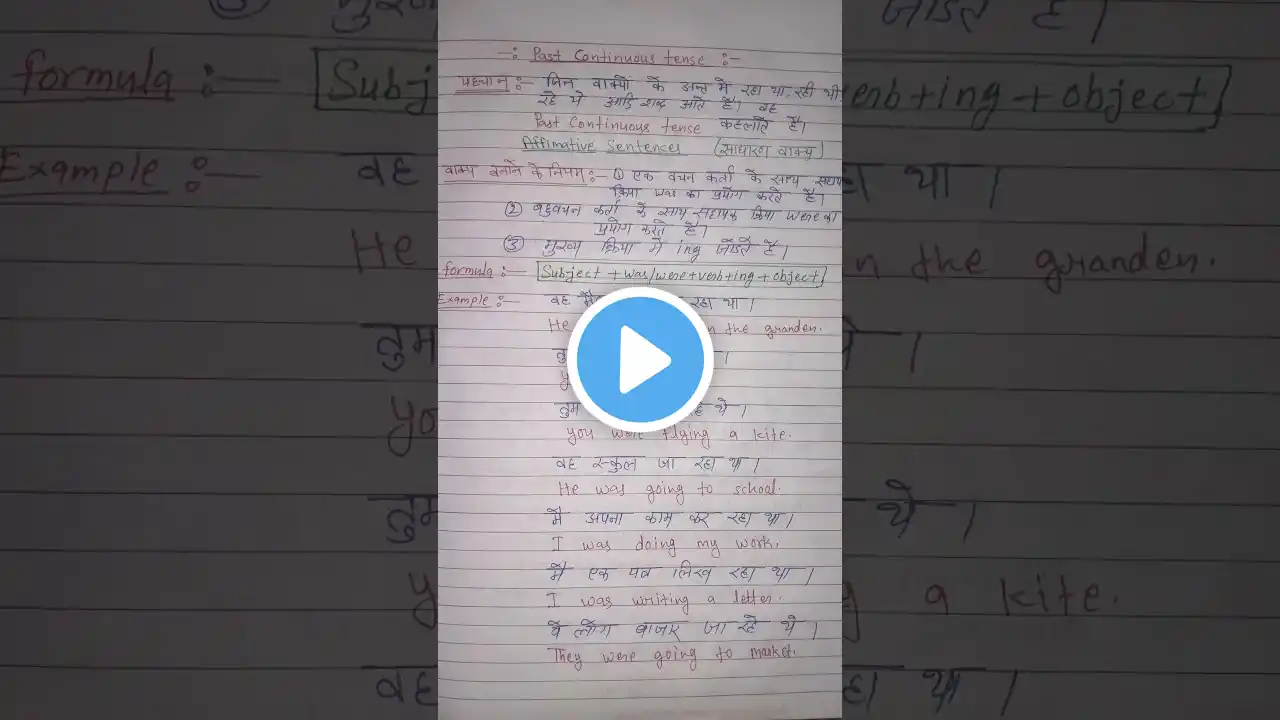 -: Past Continuous tense :-
पहचान :- जिन वाक्यों के अन्त में रहा था, रही थी
रहे थे आदि शब्द आते है। वह
Past Continuous tense कहलाते है।
Affimative Sentences (साधारण वाक्य)
वाक्य बनाने के नियम :- ① एक वचन कर्ता के साथ सहाय
क्रिया was का प्रयोग करते है।
② बहुवचन कर्ता के साथ सहायक क्रिया were का
प्रयोग करते है।
③ मुख्य क्रिया में ing जोडते है।
formula :- Subject + was/were+verb+ing+object
Example :- वह रहा था।
He the granden.
तुम थे।
you were flying a kite.
वह स्कुल जा रहा था।
He was going to school.
मै अपना काम कर रहा था।
I was doing my work.
मै एक पत्र लिख रहा था।
I was writing a letter.
वे लोग बाजार जा रहे थे।
They were going to market.